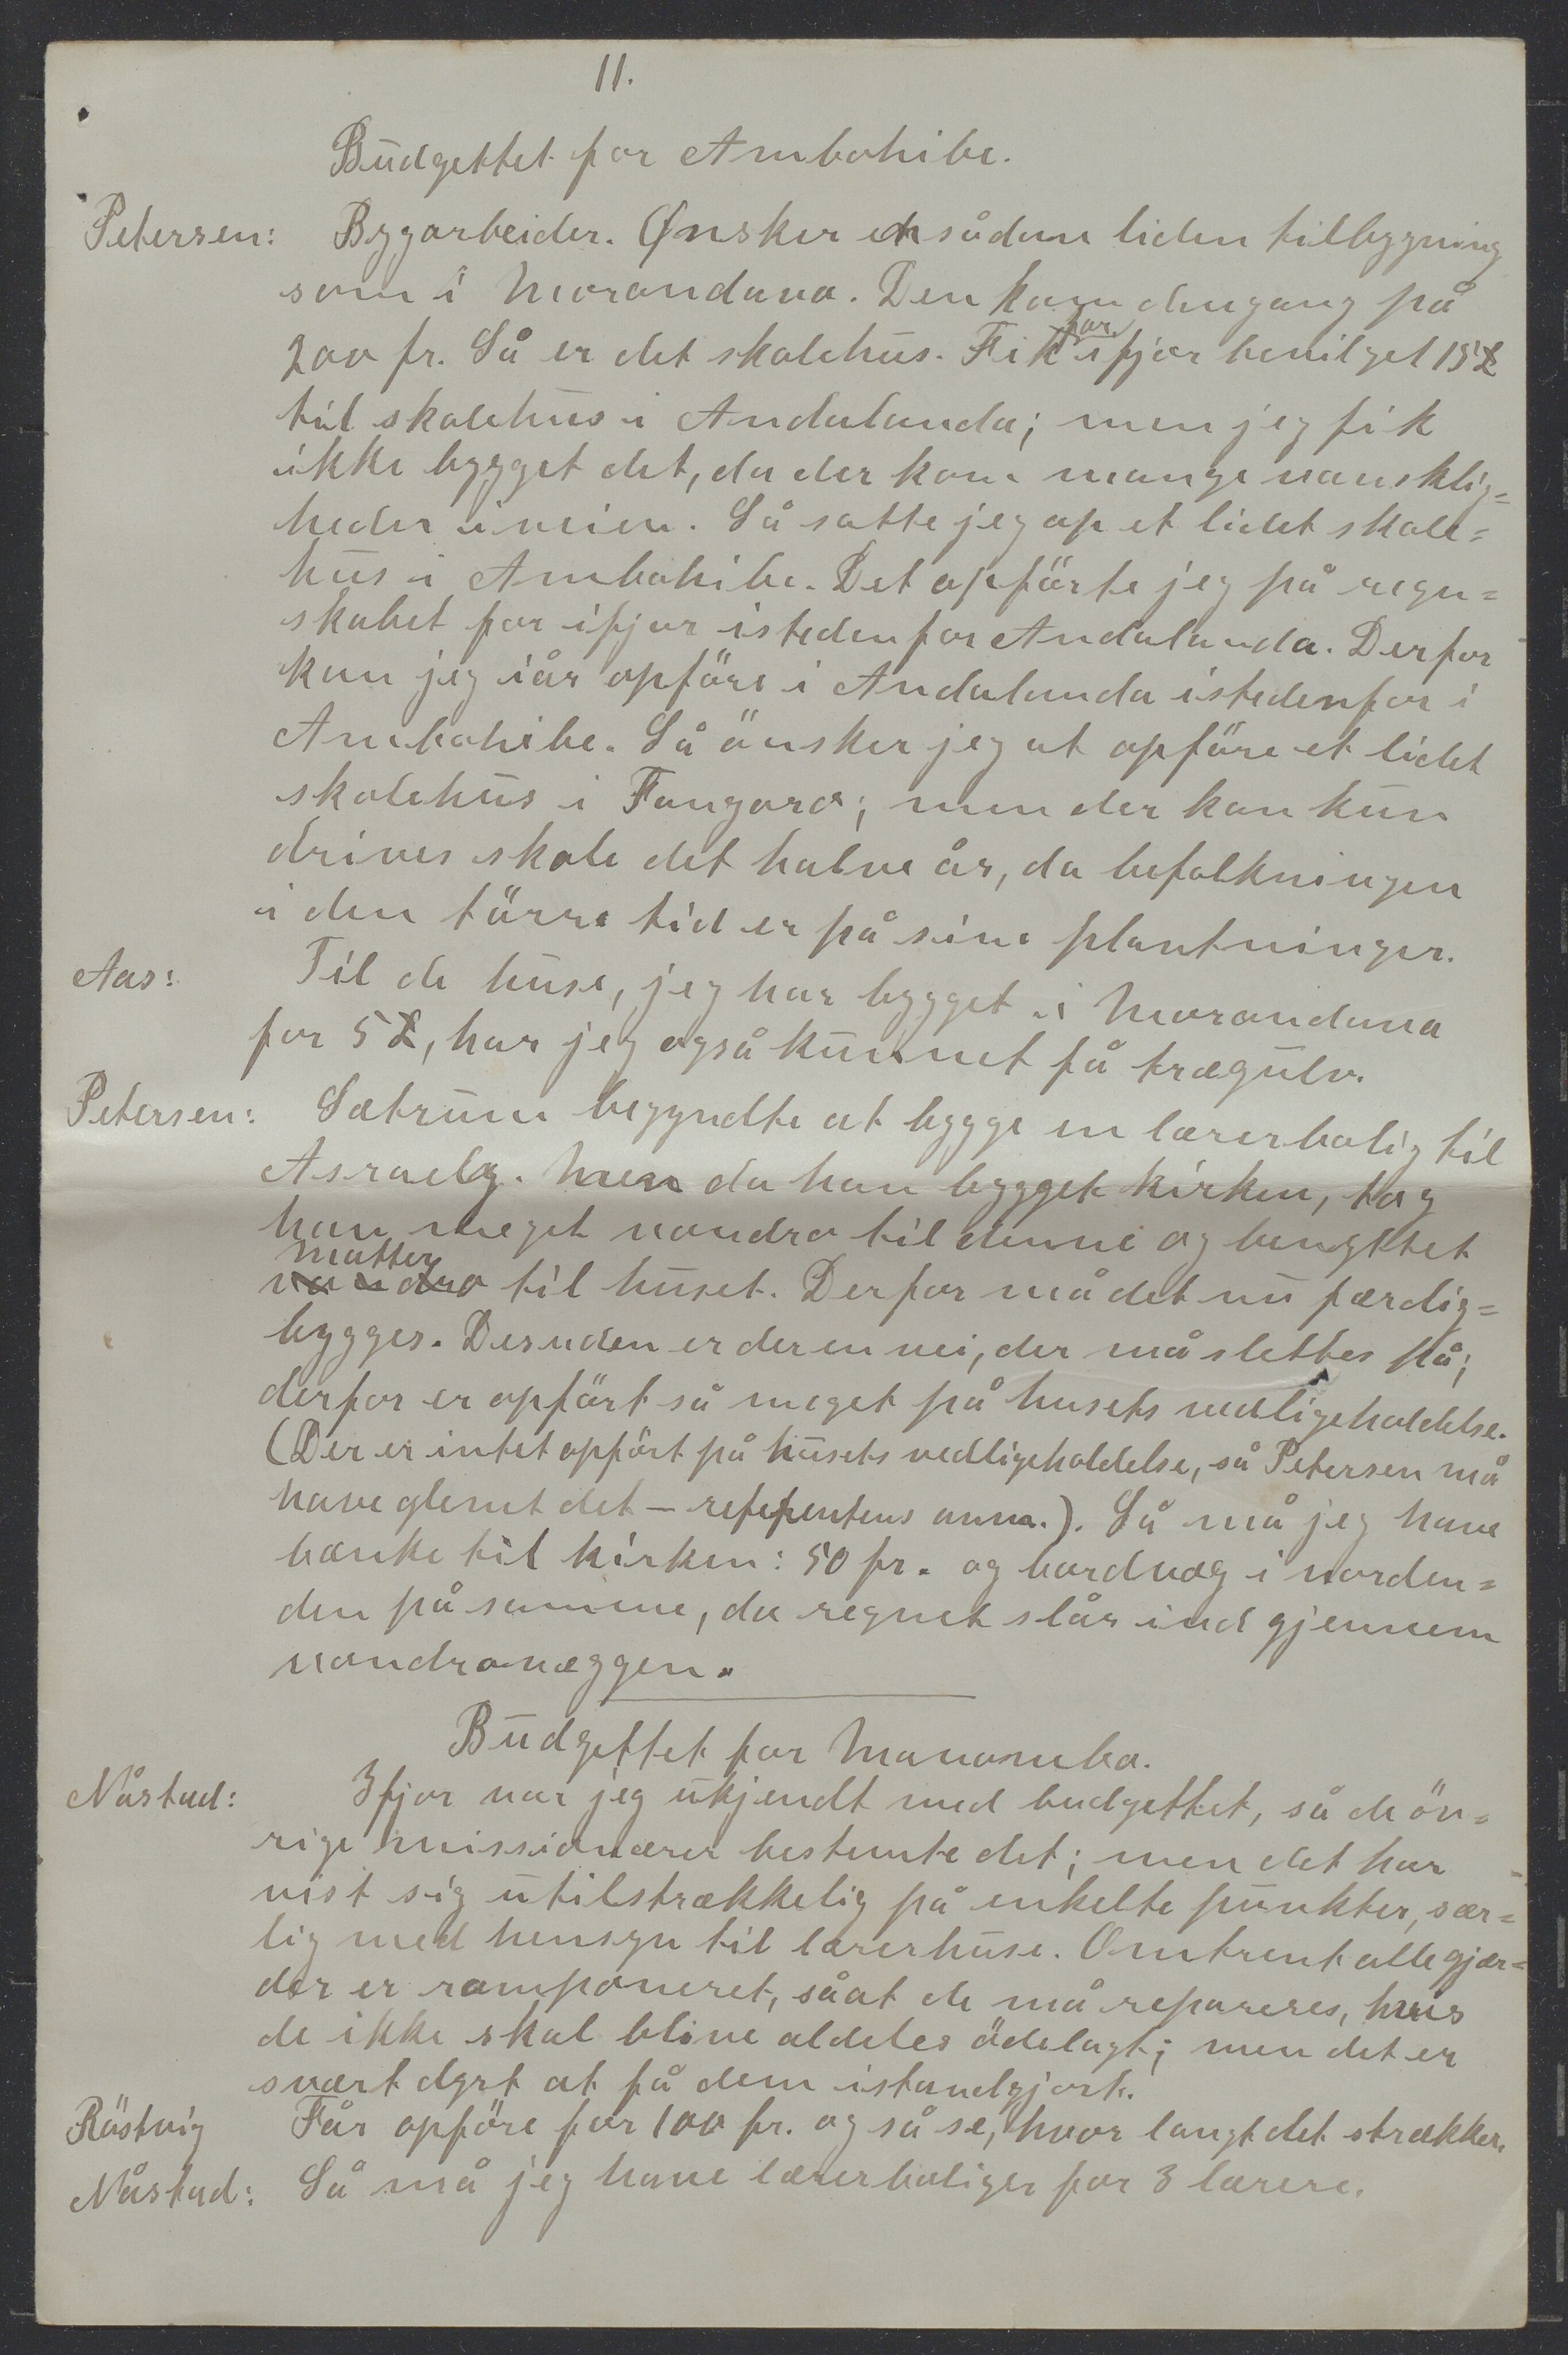 11.
Budgettet for Ambohibe.
Petersen: Bygarbeider. Ønsker en sådan liden tilbygning
som i Morondava. Den kom dengang på
200 fr. Så er det skolehus. Fik for ifjor bevilget 15£
til skolehus i Andalanda; men jeg fik
ikke bygget det, da der kom mange vansklig=
heder i veien. Så satte jeg op et lidet skole=
hus i Ambohibe. Det opførte jeg på regn=
skabet for ifjor istedenfor Andalanda. Derfor
kan jeg iår opføre i Andalanda istedenfor i
Ambohibe. Så ønsker jeg at opføre et lidet
skolehus i Fangoro; men der kan kun
drives skole det halve år, da befolkningen
i den tørre tid er på sine plantninger.
Aas: Til de huse, jeg har bygget i Morondava
for 5£, har jeg også kunnet få trægulv.
Petersen: Sætrum begyndte at bygge en lærerbolig til
Asraely. Men da han bygget kirken, tog
han meget vondro til denne og benyttet
matter
vondro til huset. Derfor må det nu færdig=
bygges. Desuden er der en vei, der må slettes på;
derfor er opført så meget på husets vedligeholdelse.
(Der er intet opført på husets vedligeholdelse, så Petersen må
have glemt det – referentens anm.). Så må jeg have
bænke til kirken: 50 fr. og bordvæg i norden=
den på samme, da regnet slår ind gjennem
vondrovæggen.
Budgettet for Manombo.
Nåstad: Ifjor var jeg ukjendt med budgettet, så de øv=
rige missionærer bestemte det; men det har
vist sig utilstrækkelig på enkelte punkter, sær=
lig med hensyn til lærerhuse. Omtrent alle gjær=
der er ramponeret, såat de må repareres, hvis
de ikke skal blive aldeles ødelagt; men det er
svært dyrt at få dem istandgjort.
Röstvig Får opføre for 100 fr. og så se, hvor langt det strækker.
Nåstad: Så må jeg have lærerboliger for 3 lærere.